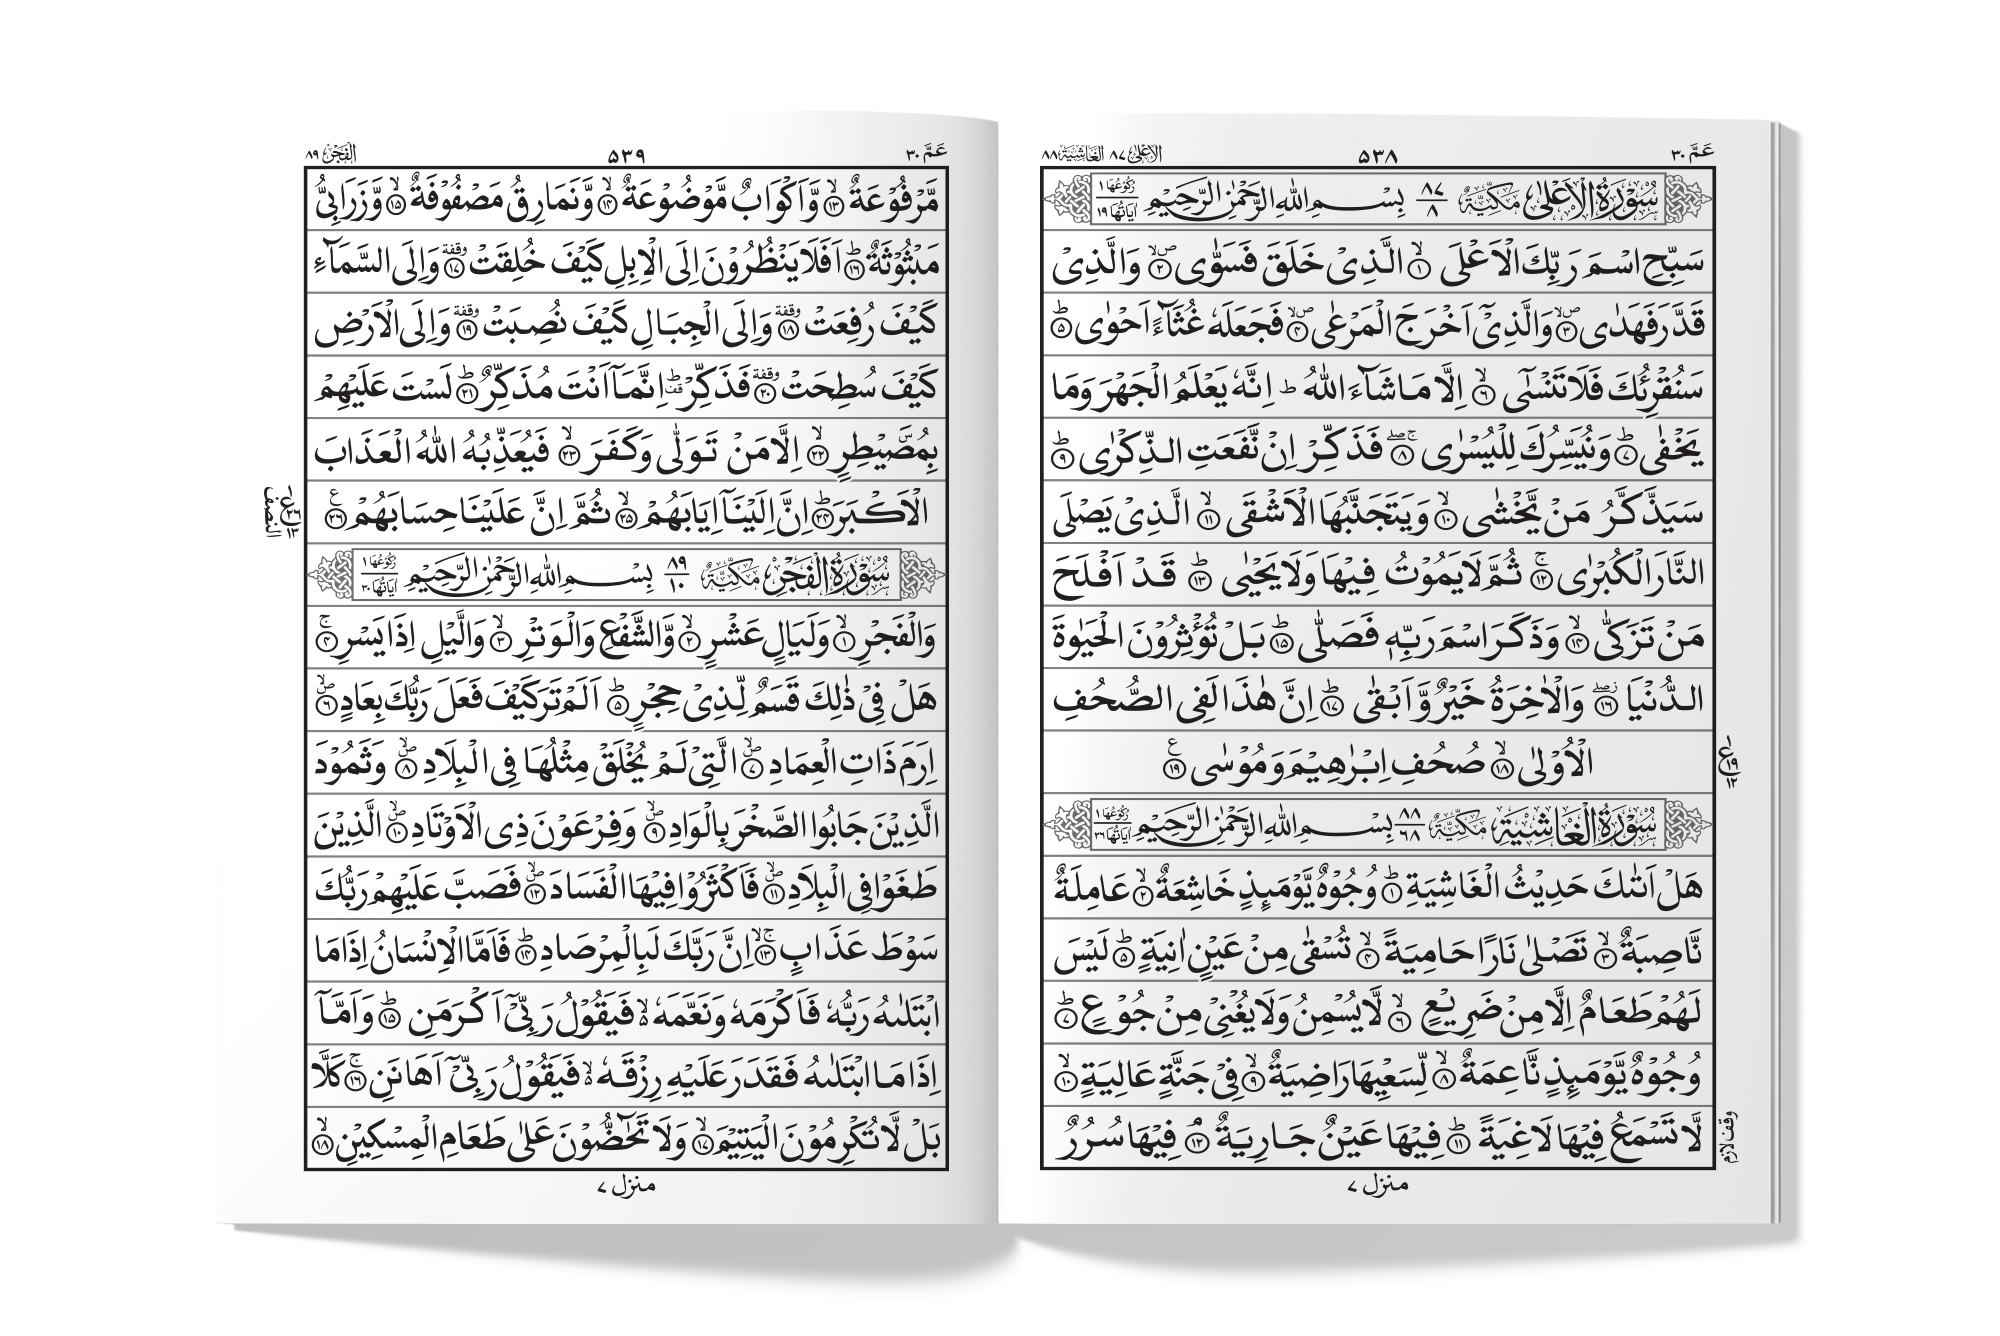 عَمَّ ۳۰
۵۳۸
الاعلیٰ ۸۷ الغاشیۃ ۸۸
سُوْرَةُ الْاَعْلٰی مَكِّيَّةٌ ۸۷ ۸ بِسْمِ اللهِ الرَّحْمٰنِ الرَّحِيْمِ رُكُوْعُهَا ۱ اٰيَاتُهَا ۱۹
سَبِّحِ اسْمَ رَبِّكَ الْاَعْلَى ۙ﴿۱﴾ الَّذِىْ خَلَقَ فَسَوّٰى ۙ﴿۲﴾ وَالَّذِىْ
قَدَّرَ فَهَدٰى ۙ﴿۳﴾ وَالَّذِىْۤ اَخْرَجَ الْمَرْعٰى ۙ﴿۴﴾ فَجَعَلَهٗ غُثَآءً اَحْوٰى ؕ﴿۵﴾
سَنُقْرِئُكَ فَلَا تَنْسٰٓى ۙ﴿۶﴾ اِلَّا مَا شَآءَ اللهُ ؕ اِنَّهٗ يَعْلَمُ الْجَهْرَ وَمَا
يَخْفٰى ؕ﴿۷﴾ وَنُيَسِّرُكَ لِلْيُسْرٰى ۚ﴿۸﴾ فَذَكِّرْ اِنْ نَّفَعَتِ الذِّكْرٰى ؕ﴿۹﴾
سَيَذَّكَّرُ مَنْ يَّخْشٰى ۙ﴿۱۰﴾ وَيَتَجَنَّبُهَا الْاَشْقَى ۙ﴿۱۱﴾ الَّذِىْ يَصْلَى
النَّارَ الْكُبْرٰى ۚ﴿۱۲﴾ ثُمَّ لَا يَمُوْتُ فِيْهَا وَلَا يَحْيٰى ؕ﴿۱۳﴾ قَدْ اَفْلَحَ
مَنْ تَزَكّٰى ۙ﴿۱۴﴾ وَذَكَرَ اسْمَ رَبِّهٖ فَصَلّٰى ؕ﴿۱۵﴾ بَلْ تُؤْثِرُوْنَ الْحَيٰوةَ
الدُّنْيَا ۖ﴿۱۶﴾ وَالْاٰخِرَةُ خَيْرٌ وَّاَبْقٰى ؕ﴿۱۷﴾ اِنَّ هٰذَا لَفِى الصُّحُفِ
الْاُوْلٰى ۙ﴿۱۸﴾ صُحُفِ اِبْرٰهِيْمَ وَمُوْسٰى ﴿۱۹﴾
ع ۱۹ ۱۲
سُوْرَةُ الْغَاشِيَةِ مَكِّيَّةٌ ۸۸ ۶۸ بِسْمِ اللهِ الرَّحْمٰنِ الرَّحِيْمِ رُكُوْعُهَا ۱ اٰيَاتُهَا ۲۶
هَلْ اَتٰىكَ حَدِيْثُ الْغَاشِيَةِ ؕ﴿۱﴾ وُجُوْهٌ يَّوْمَئِذٍ خَاشِعَةٌ ۙ﴿۲﴾ عَامِلَةٌ
نَّاصِبَةٌ ۙ﴿۳﴾ تَصْلٰى نَارًا حَامِيَةً ۙ﴿۴﴾ تُسْقٰى مِنْ عَيْنٍ اٰنِيَةٍ ؕ﴿۵﴾ لَيْسَ
لَهُمْ طَعَامٌ اِلَّا مِنْ ضَرِيْعٍ ۙ﴿۶﴾ لَّا يُسْمِنُ وَلَا يُغْنِىْ مِنْ جُوْعٍ ؕ﴿۷﴾
وُجُوْهٌ يَّوْمَئِذٍ نَّاعِمَةٌ ۙ﴿۸﴾ لِّسَعْيِهَا رَاضِيَةٌ ۙ﴿۹﴾ فِىْ جَنَّةٍ عَالِيَةٍ ۙ﴿۱۰﴾
لَّا تَسْمَعُ فِيْهَا لَاغِيَةً ؕ﴿۱۱﴾ فِيْهَا عَيْنٌ جَارِيَةٌ ۘ﴿۱۲﴾ فِيْهَا سُرُرٌ
وقف لازم
منزل ۷
عَمَّ ۳۰
۵۳۹
الفجر ۸۹
مَّرْفُوْعَةٌ ۙ﴿۱۳﴾ وَّاَكْوَابٌ مَّوْضُوْعَةٌ ۙ﴿۱۴﴾ وَّنَمَارِقُ مَصْفُوْفَةٌ ۙ﴿۱۵﴾ وَّزَرَابِىُّ
مَبْثُوْثَةٌ ؕ﴿۱۶﴾ اَفَلَا يَنْظُرُوْنَ اِلَى الْاِبِلِ كَيْفَ خُلِقَتْ وقفة ﴿۱۷﴾ وَاِلَى السَّمَآءِ
كَيْفَ رُفِعَتْ وقفة ﴿۱۸﴾ وَاِلَى الْجِبَالِ كَيْفَ نُصِبَتْ وقفة ﴿۱۹﴾ وَاِلَى الْاَرْضِ
كَيْفَ سُطِحَتْ وقفة ﴿۲۰﴾ فَذَكِّرْ قف ؕ اِنَّمَاۤ اَنْتَ مُذَكِّرٌ ؕ﴿۲۱﴾ لَسْتَ عَلَيْهِمْ
بِمُصَۜيْطِرٍ ۙ﴿۲۲﴾ اِلَّا مَنْ تَوَلّٰى وَكَفَرَ ۙ﴿۲۳﴾ فَيُعَذِّبُهُ اللهُ الْعَذَابَ
الْاَكْبَرَ ؕ﴿۲۴﴾ اِنَّ اِلَيْنَاۤ اِيَابَهُمْ ۙ﴿۲۵﴾ ثُمَّ اِنَّ عَلَيْنَا حِسَابَهُمْ ﴿۲۶﴾
ع ۲۶ ۱۳ النصف
سُوْرَةُ الْفَجْرِ مَكِّيَّةٌ ۸۹ ۱۰ بِسْمِ اللهِ الرَّحْمٰنِ الرَّحِيْمِ رُكُوْعُهَا ۱ اٰيَاتُهَا ۳۰
وَالْفَجْرِ ۙ﴿۱﴾ وَلَيَالٍ عَشْرٍ ۙ﴿۲﴾ وَّالشَّفْعِ وَالْوَتْرِ ۙ﴿۳﴾ وَالَّيْلِ اِذَا يَسْرِ ۚ﴿۴﴾
هَلْ فِىْ ذٰلِكَ قَسَمٌ لِّذِىْ حِجْرٍ ؕ﴿۵﴾ اَلَمْ تَرَ كَيْفَ فَعَلَ رَبُّكَ بِعَادٍ ۙ﴿۶﴾
اِرَمَ ذَاتِ الْعِمَادِ ۙ﴿۷﴾ الَّتِىْ لَمْ يُخْلَقْ مِثْلُهَا فِى الْبِلَادِ ۙ﴿۸﴾ وَثَمُوْدَ
الَّذِيْنَ جَابُوا الصَّخْرَ بِالْوَادِ ۙ﴿۹﴾ وَفِرْعَوْنَ ذِى الْاَوْتَادِ ۙ﴿۱۰﴾ الَّذِيْنَ
طَغَوْا فِى الْبِلَادِ ۙ﴿۱۱﴾ فَاَكْثَرُوْا فِيْهَا الْفَسَادَ ۙ﴿۱۲﴾ فَصَبَّ عَلَيْهِمْ رَبُّكَ
سَوْطَ عَذَابٍ ۚ﴿۱۳﴾ اِنَّ رَبَّكَ لَبِالْمِرْصَادِ ؕ﴿۱۴﴾ فَاَمَّا الْاِنْسَانُ اِذَا مَا
ابْتَلٰىهُ رَبُّهٗ فَاَكْرَمَهٗ وَنَعَّمَهٗ ۙ فَيَقُوْلُ رَبِّىْۤ اَكْرَمَنِ ؕ﴿۱۵﴾ وَاَمَّاۤ
اِذَا مَا ابْتَلٰىهُ فَقَدَرَ عَلَيْهِ رِزْقَهٗ ۙ فَيَقُوْلُ رَبِّىْۤ اَهَانَنِ ۚ﴿۱۶﴾ كَلَّا
بَلْ لَّا تُكْرِمُوْنَ الْيَتِيْمَ ۙ﴿۱۷﴾ وَلَا تَحٰٓضُّوْنَ عَلٰى طَعَامِ الْمِسْكِيْنِ ۙ﴿۱۸﴾
منزل ۷